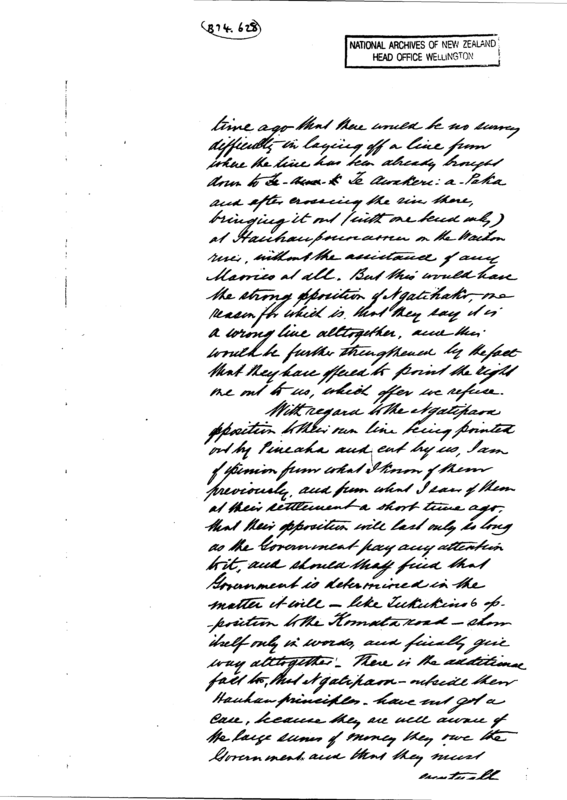 (B74. 628)
NATIONAL ARCHIVES OF NEW ZEALAND
HEAD OFFICE WELLINGTON
time ago that there would be no survey
difficulty in laying off a line from
where the line has been already brought
down to Te Awakeri: a-Paka
and after crossing the river there,
bringing it out (with one bend only)
at on the Waihou
river, without the assistance of any
Maories at all. But this would have
the strong opposition of Ngatihako, one
reason for which is that they say it is
a wrong line alltogether, and this
would be further strengthened by the fact
that they have offered to point the right
one out to us, which offer we refuse.
With regard to the Ngatipaoa
opposition to their own line being pointed
out by Pineaha and cut by us, I am
of opinion from what I know of them
previously, and from what I saw of them
at their settlement a short time ago,
that their opposition will last only as long
as the Government pay any attention
to it, and should they find that
Government is determined in the
matter it will - like Tukukino's op-
-position to the Komata road - show
itself only in words, and finally give
way alltogether. There is the additional
fact to, that Ngatipaoa - outside their
Hauhau principles - have not got a
case, because they are well aware of
the large sums of money they owe the
Government and that they must